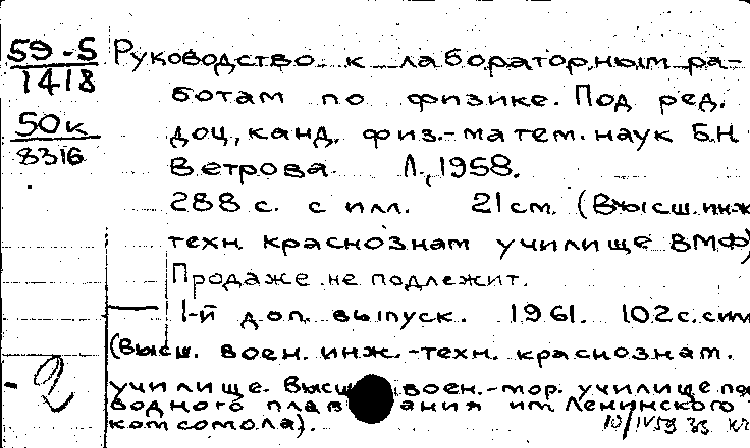 59-5
1418
50к
8316
Руководство к лабораторным ра-
ботам по физике. Под ред.
доц., канд. физ.-матем. наук Б.Н.
Ветрова Л., 1958.
288 с. с илл. 21 см. (Высш. инж
техн. краснознам училище ВМФ)
Продаже не подлежит.
1-й доп. выпуск. 1961. 102 с. с илл
(Высш. воен. инж.-техн. краснознам.
училище. Высш. воен.-мор. училище по
водного плав ания им Ленинского
комсомола).
2